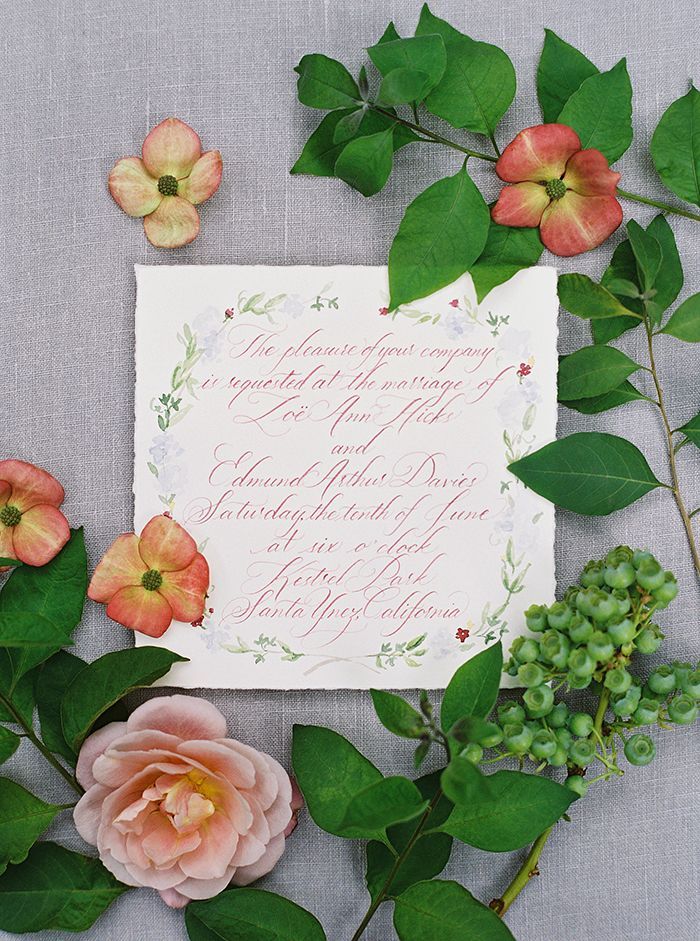 The pleasure of your company
is requested at the marriage of
Zoë Ann Hicks
and
Edmund Arthur Davies
Saturday, the tenth of June
at six o'clock
Kestrel Park
Santa Ynez, California